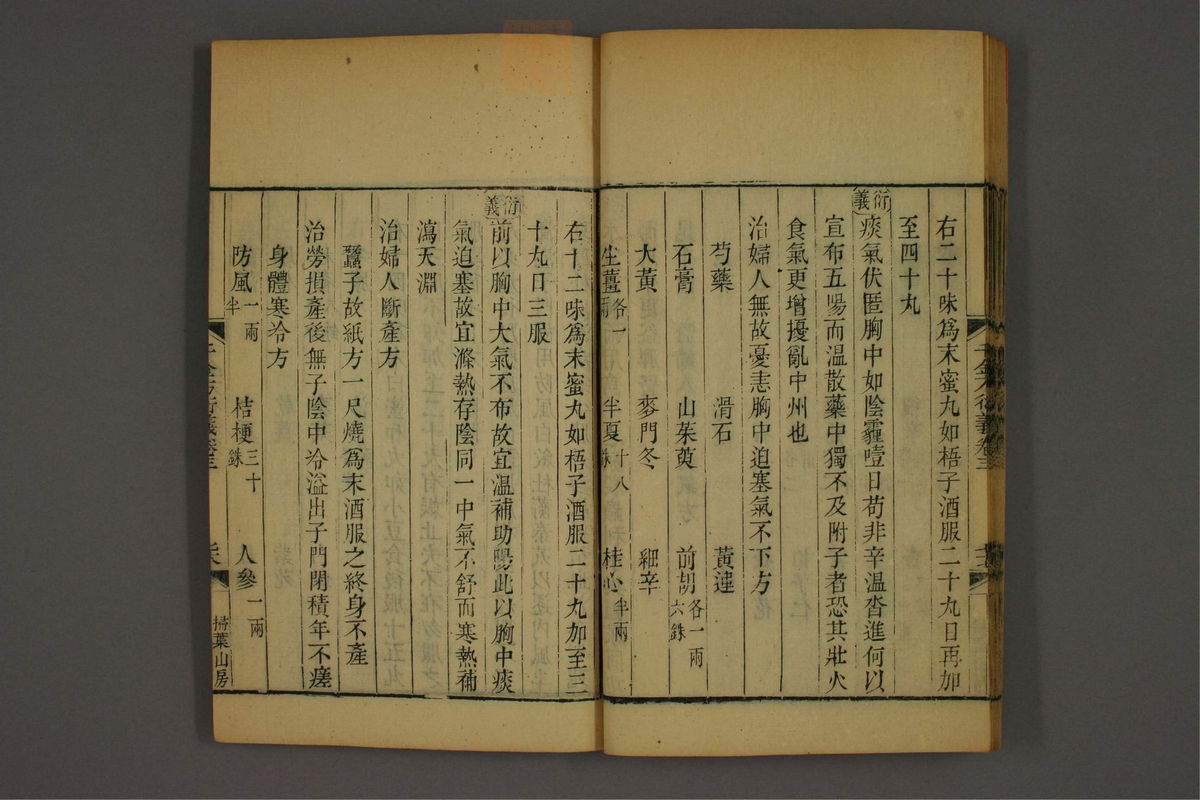 右二十味為末蜜丸如梧子酒服二十丸日再加
至四十丸
衍義 痰氣伏匿胸中如陰霾噎日苟非辛溫沓進何以
宣布五陽而溫散藥中獨不及附子者恐其壯火
食氣更增擾亂中州也
治婦人無故憂恚胸中迫塞氣不下方
芍藥 滑石 黃連
石膏 山茱萸 前胡各一兩六銖
大黃 麥門冬 細辛
生薑各一兩 半夏十八銖 桂心半兩
右十二味為末蜜丸如梧子酒服二十丸加至三
十丸日三服
衍義 前以胸中大氣不布故宜溫補助陽此以胸中痰
氣迫塞故宜滌熱存陰同一中氣不舒而寒熱補
瀉天淵
治婦人斷產方
蠶子故紙方一尺燒為末酒服之終身不產
治勞損產後無子陰中冷溢出子門閉積年不瘥
身體寒冷方
防風一兩半 桔梗三十銖 人參一兩
千金方衍義卷三
掃葉山房